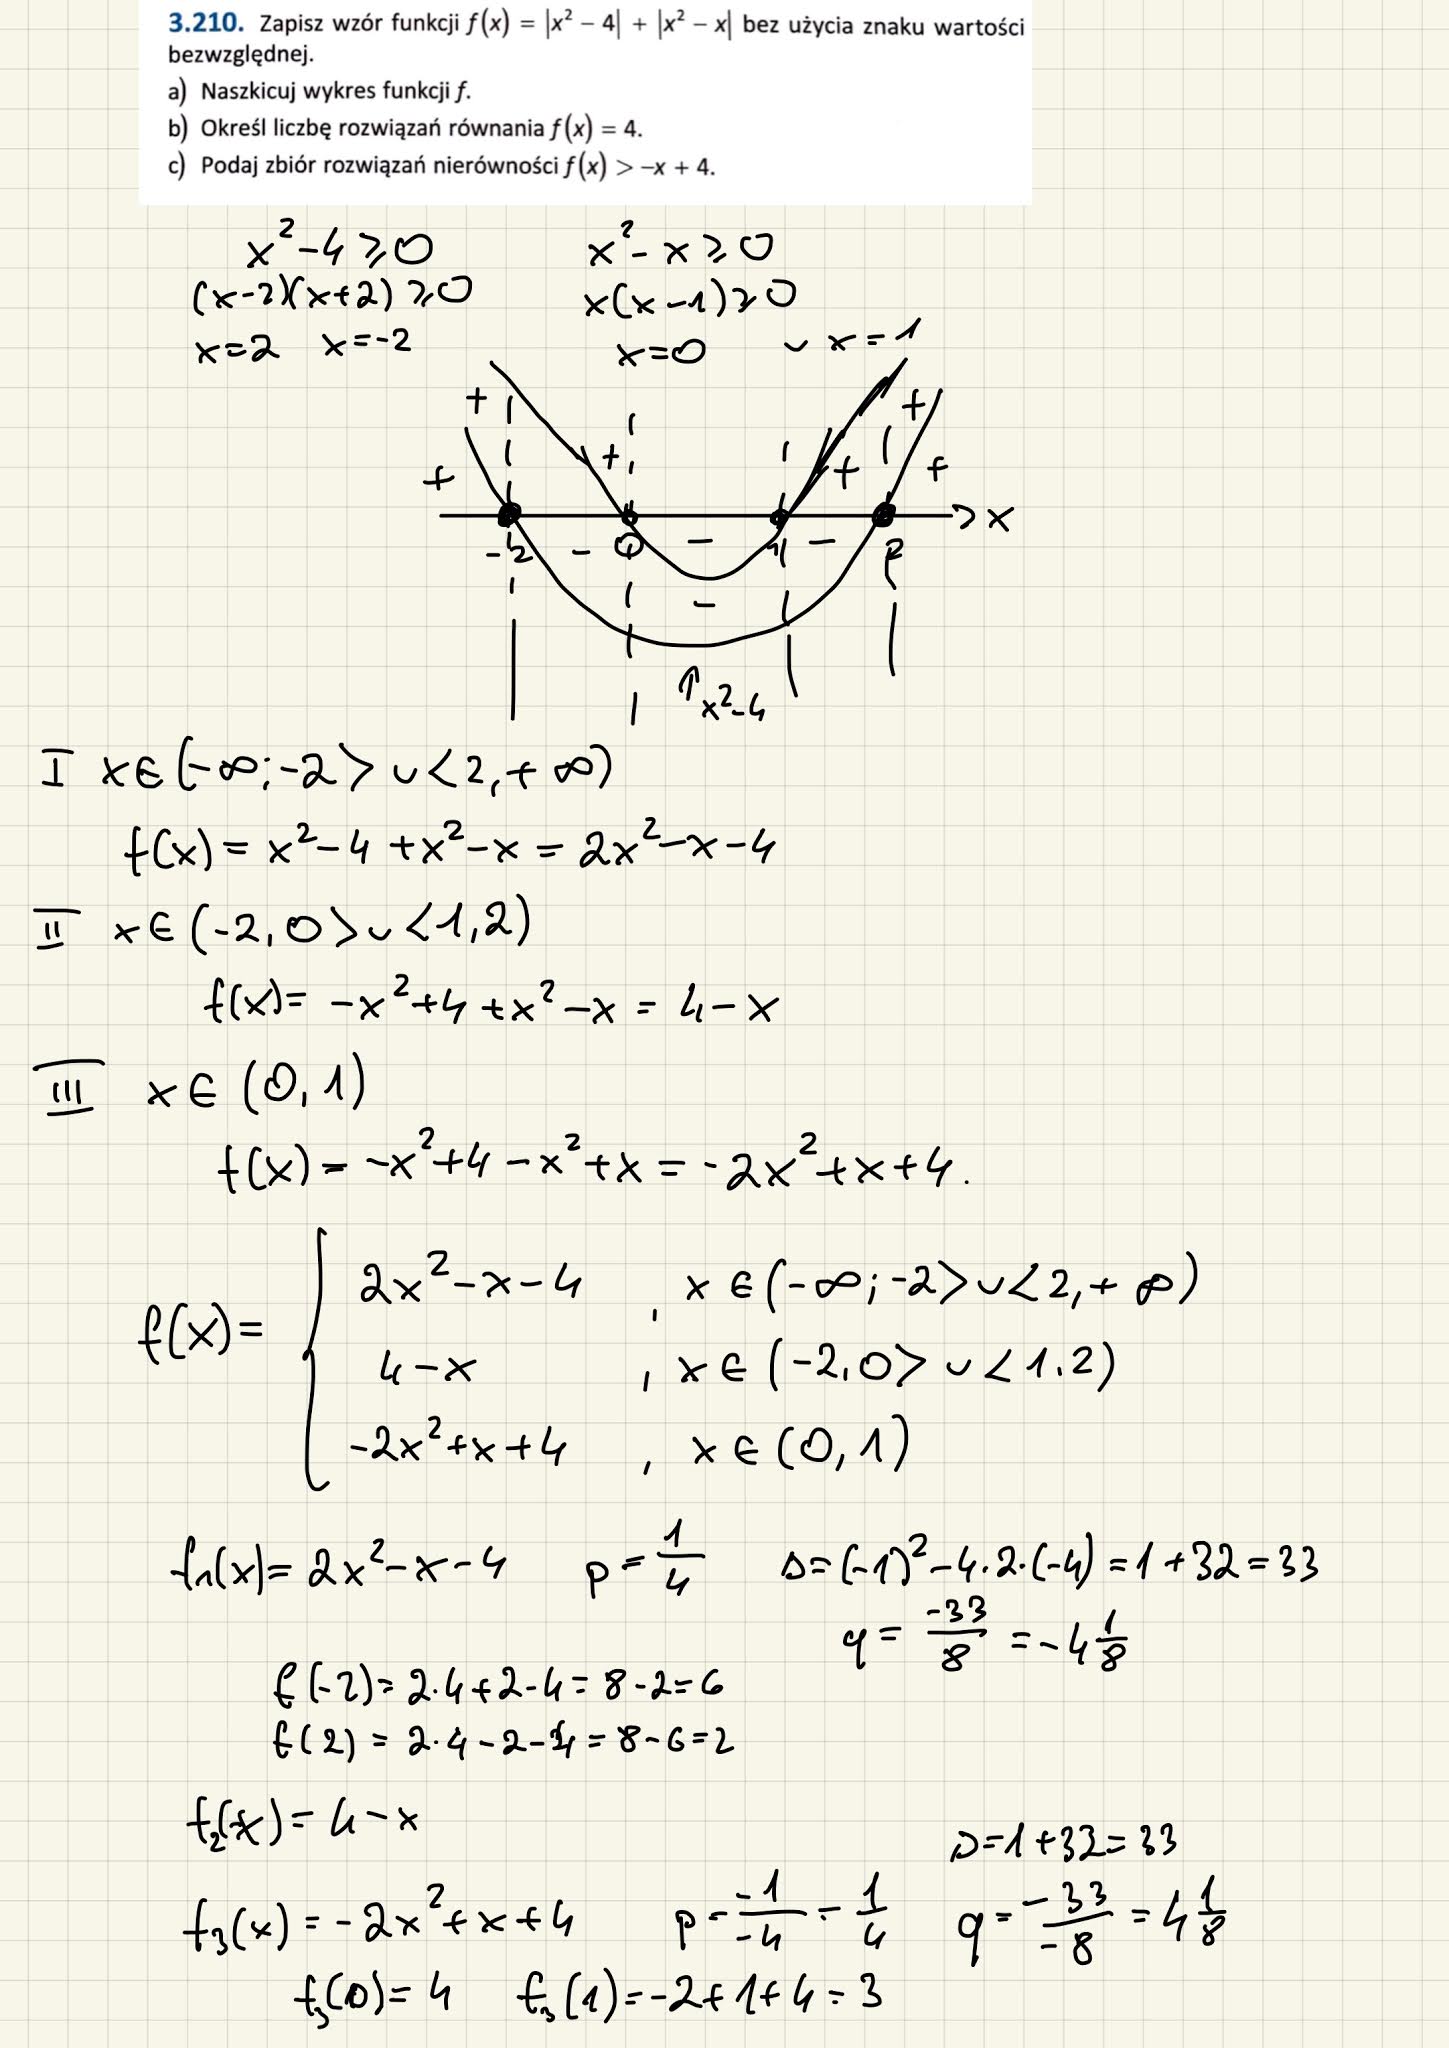 3.210. Zapisz wzór funkcji f(x) = |x² − 4| + |x² − x| bez użycia znaku wartości
bezwzględnej.
a) Naszkicuj wykres funkcji f.
b) Określ liczbę rozwiązań równania f(x) = 4.
c) Podaj zbiór rozwiązań nierówności f(x) > −x + 4.
x² − 4 ⩾ 0    x² − x ⩾ 0
(x−2)(x+2) ⩾ 0    x(x−1) ⩾ 0
x=2  x=−2    x=0 ∨ x=1
+ + + +
+ + +
> x
−2 − 0 − 1 − 2
−
↑ x²−4
I x∈(−∞;−2> ∪ <2,+∞)
f(x) = x²−4+x²−x = 2x²−x−4
II x∈(−2,0> ∪ <1,2)
f(x) = −x²+4+x²−x = 4−x
III x∈(0,1)
f(x) = −x²+4−x²+x = −2x²+x+4.
2x²−x−4 , x∈(−∞;−2> ∪ <2,+∞)
f(x) = { 4−x , x∈(−2,0> ∪ <1.2)
−2x²+x+4 , x∈(0,1)
f₁(x) = 2x²−x−4  p = 1/4  Δ = (−1)²−4·2·(−4) = 1+32 = 33
q = −33/8 = −4 1/8
f(−2) = 2·4+2−4 = 8−2 = 6
f(2) = 2·4−2−4 = 8−6 = 2
f₂(x) = 4−x
Δ=1+32=33
f₃(x) = −2x²+x+4  p = −1/−4 = 1/4  q = −33/−8 = 4 1/8
f₃(0) = 4  f₃(1) = −2+1+4 = 3